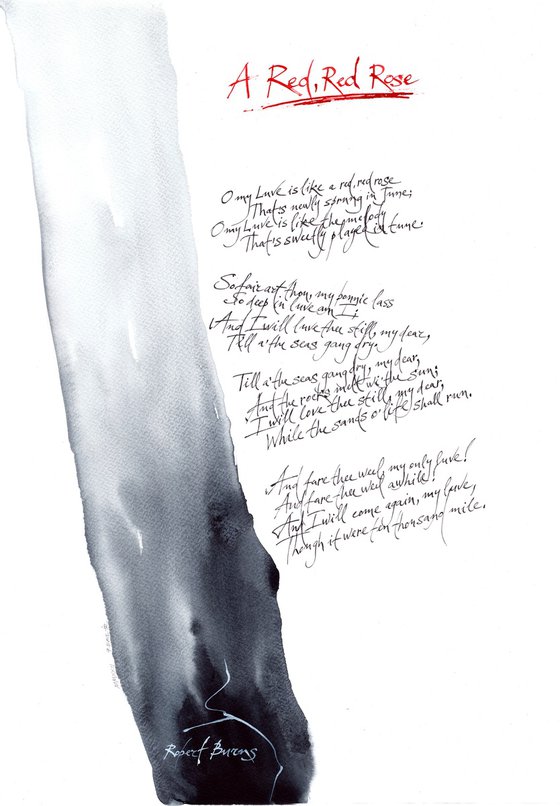 A Red, Red Rose
O my Luve is like a red, red rose
That's newly sprung in June;
O my Luve is like the melody
That's sweetly played in tune.
So fair art thou, my bonnie lass
So deep in luve am I;
And I will luve thee still, my dear,
Till a' the seas gang dry.
Till a' the seas gang dry, my dear,
And the rocks melt wi' the sun;
I will love thee still, my dear,
While the sands o' life shall run.
And fare thee weel, my only luve!
And fare thee weel awhile!
And I will come again, my luve,
Though it were ten thousand mile.
Robert Burns